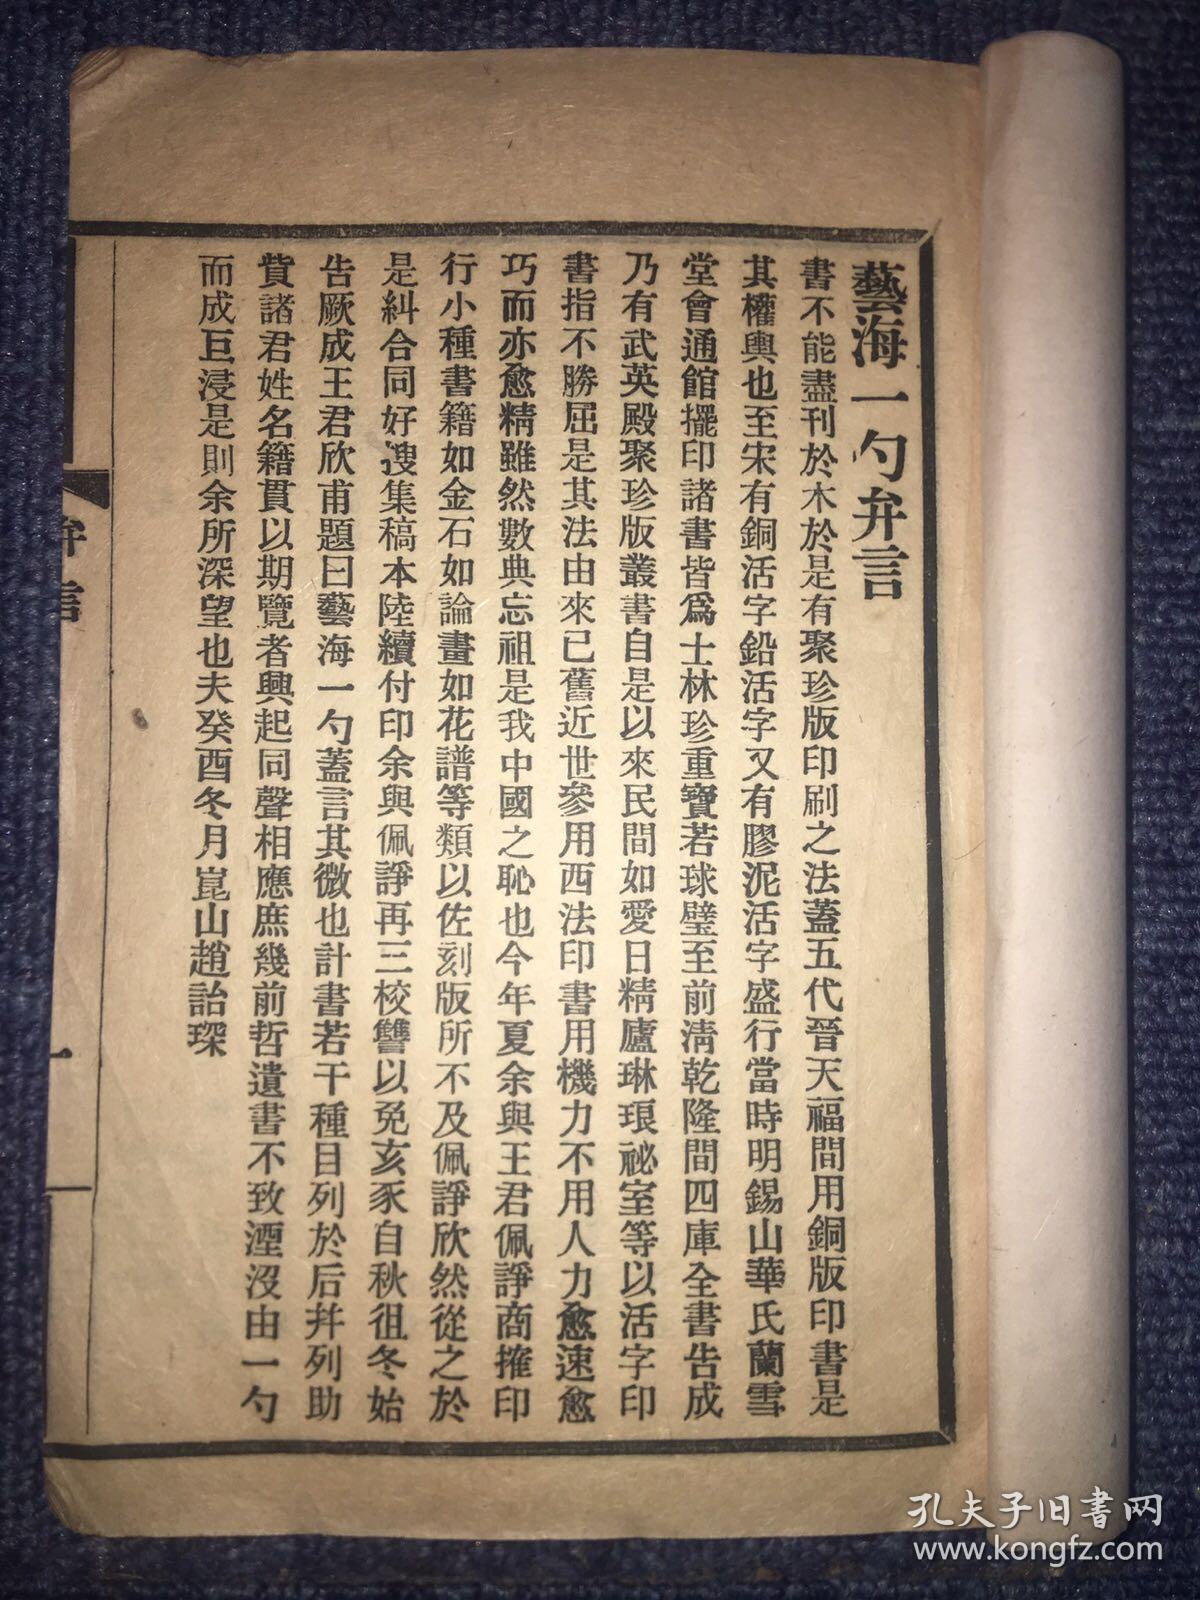 藝海一勺弁言
書不能盡刊於木於是有聚珍版印刷之法蓋五代晉天福間用銅版印書是
其權輿也至宋有銅活字鉛活字又有膠泥活字盛行當時明錫山華氏蘭雪
堂會通館擺印諸書皆爲士林珍重寶若球璧至前淸乾隆間四庫全書告成
乃有武英殿聚珍版叢書自是以來民間如愛日精廬琳琅祕室等以活字印
書指不勝屈是其法由來已舊近世參用西法印書用機力不用人力愈速愈
巧而亦愈精雖然數典忘祖是我中國之恥也今年夏余與王君佩諍商搉印
行小種書籍如金石如論畫如花譜等類以佐刻版所不及佩諍欣然從之於
是糾合同好溲集稿本陸續付印余與佩諍再三校讐以免亥豕自秋徂冬始
告厥成王君欣甫題曰藝海一勺蓋言其微也計書若干種目列於后幷列助
貲諸君姓名籍貫以期覽者興起同聲相應庶幾前哲遺書不致湮沒由一勺
而成巨浸是則余所深望也夫癸酉冬月崑山趙詒琛
弁言
一
孔夫子旧书网
www.kongfz.com